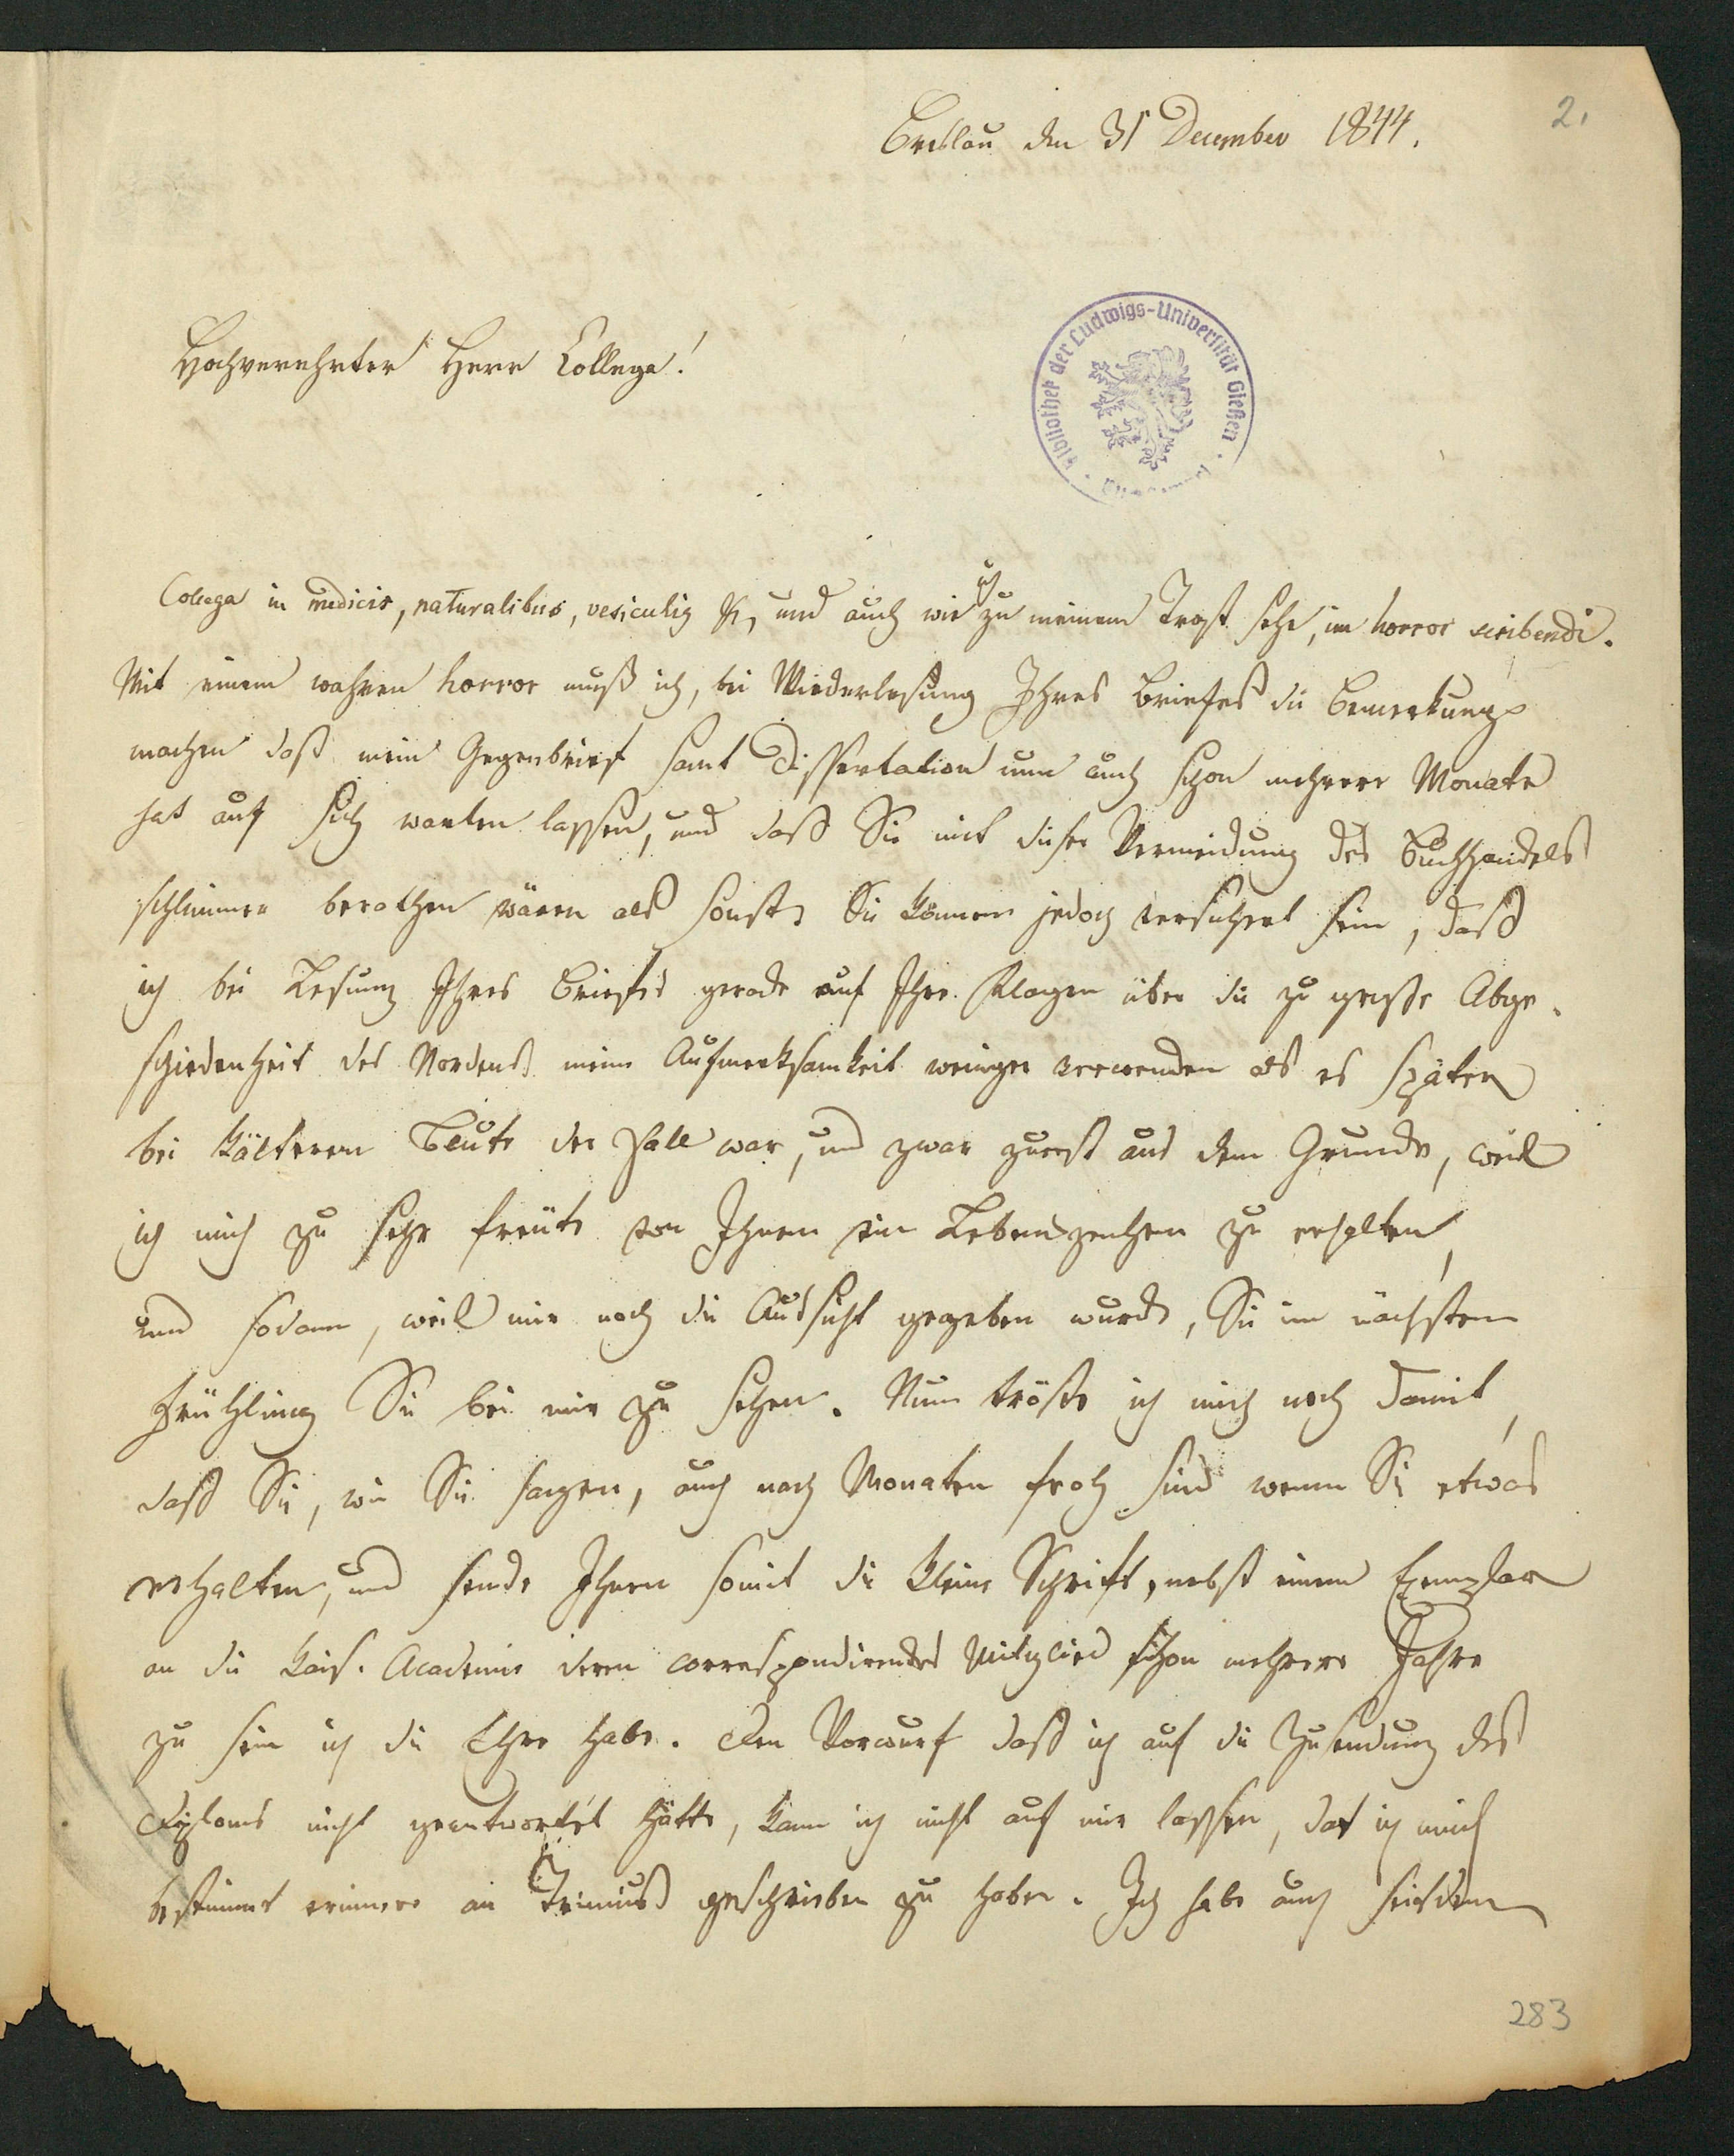 2.
Breslau den 31 December 1844.
Bibliothek der Ludwigs-Universität Gießen
Hochverehrter Herr Collega!
Collega in medicis, naturalibus, vesiculig &, und auch wie ich zu meinem Trost sehe, im horror scribendi.
Mit einem wahren horror muß ich, bei Wiederlesung Ihres Briefes die Bemerkung
machen daß mein Gegenbrief samt Dissertation nun auch schon mehrere Monate
hat auf sich warten lassen, und daß Sie mit dieser Vermeidung des Buchhandels
schlimmer berathen wären als sonst. Sie können jedoch versichert sein, daß
ich bei Lesung Ihres Briefes gerade auf Ihre Klagen über die zu große Abge-
schiedenheit des Nordens meine Aufmerksamkeit weniger verwenden als es später
bei kälterem Blute der Fall war, und zwar zuerst aus dem Grunde, weil
ich mich zu sehr freute von Ihnen ein Lebenszeichen zu erhalten,
und sodann, weil mir noch die Aussicht gegeben wurde, Sie im nächsten
Frühling Sie bei mir zu sehen. Nun tröste ich mich noch damit,
daß Sie, wie Sie sagen, auch nach Monaten froh sind wenn Sie etwas
erhalten, und sende Ihnen somit die kleine Schrift, nebst einem Exemplar
an die Kais. Academie deren correspondirendes Mitglied schon mehrere Jahre
zu sein ich die Ehre habe. Den Vorwurf daß ich auf die Zusendung des
Diploms nicht geantwortet hätte, kann ich nicht auf mir lassen, da ich mich
bestimmt erinnere an Trinius geschrieben zu haben. Ich habe auch seitdem
283